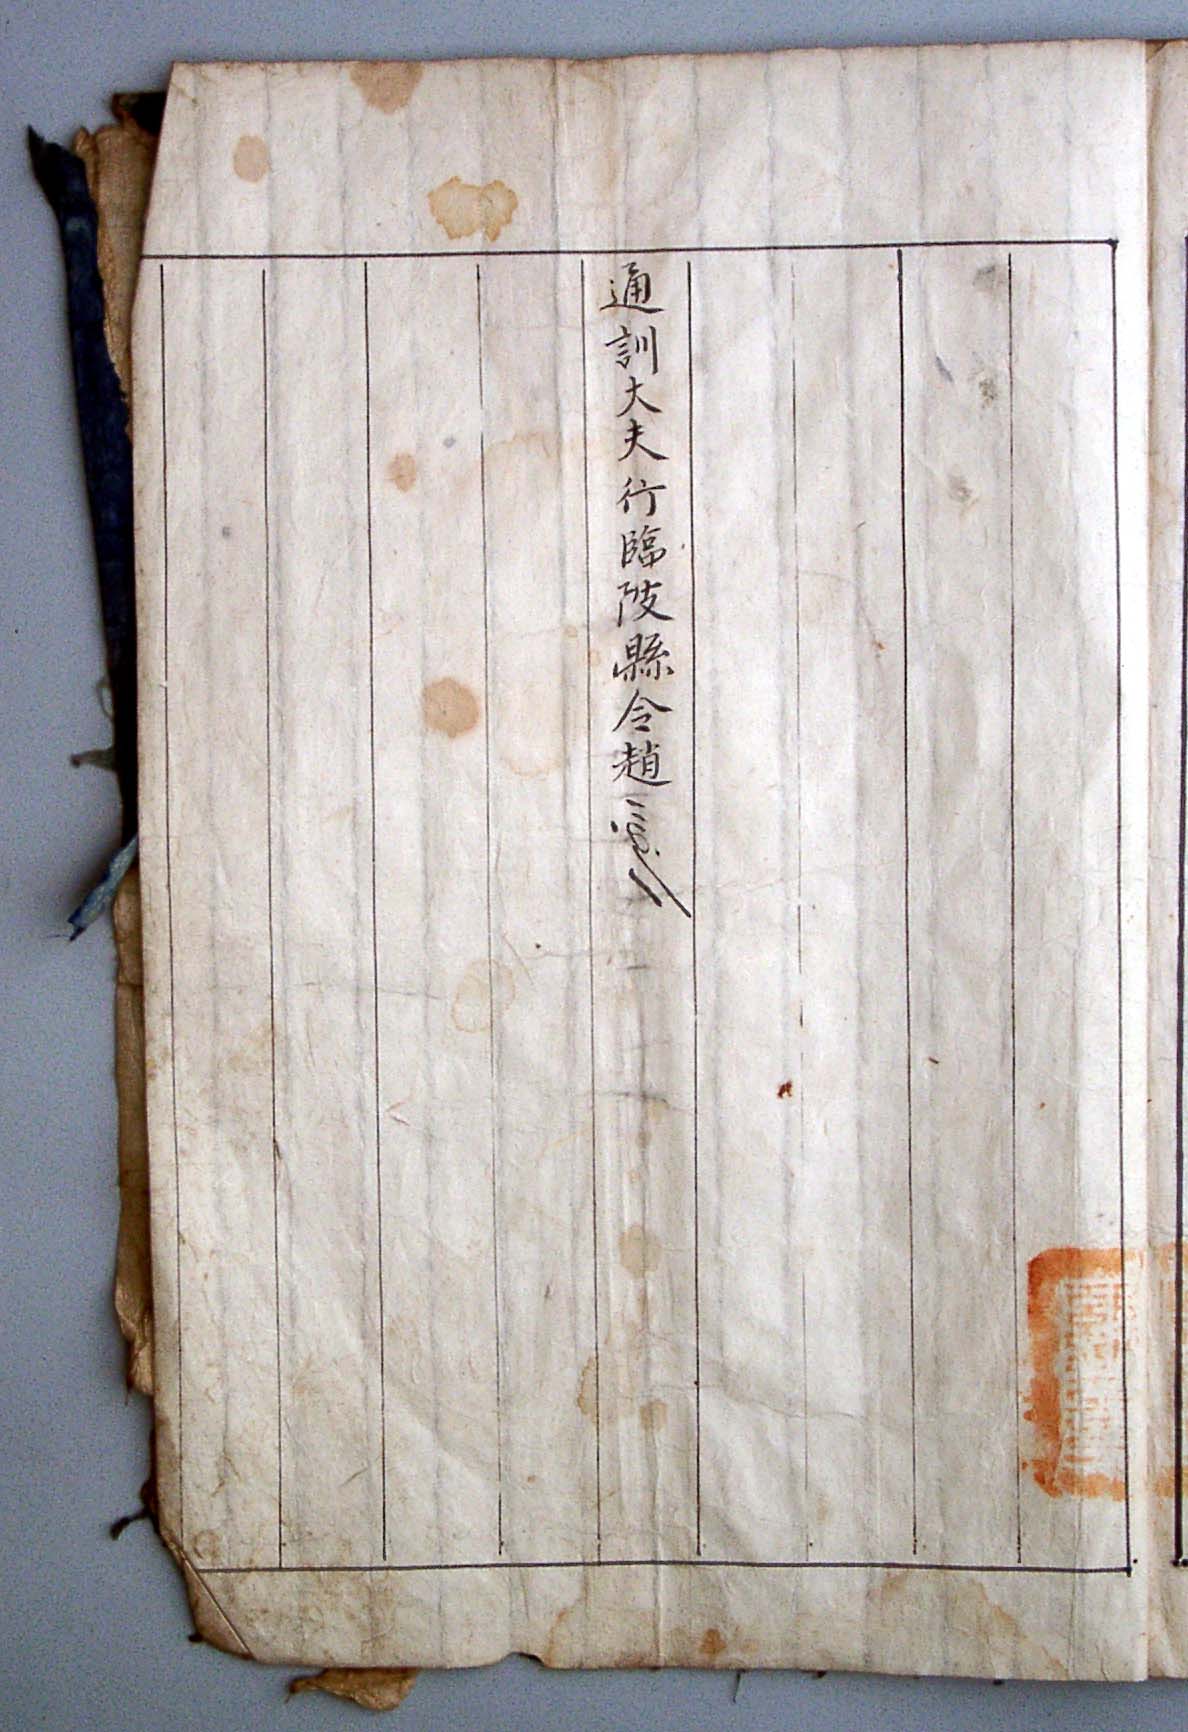 通訓大夫行臨陂縣令趙